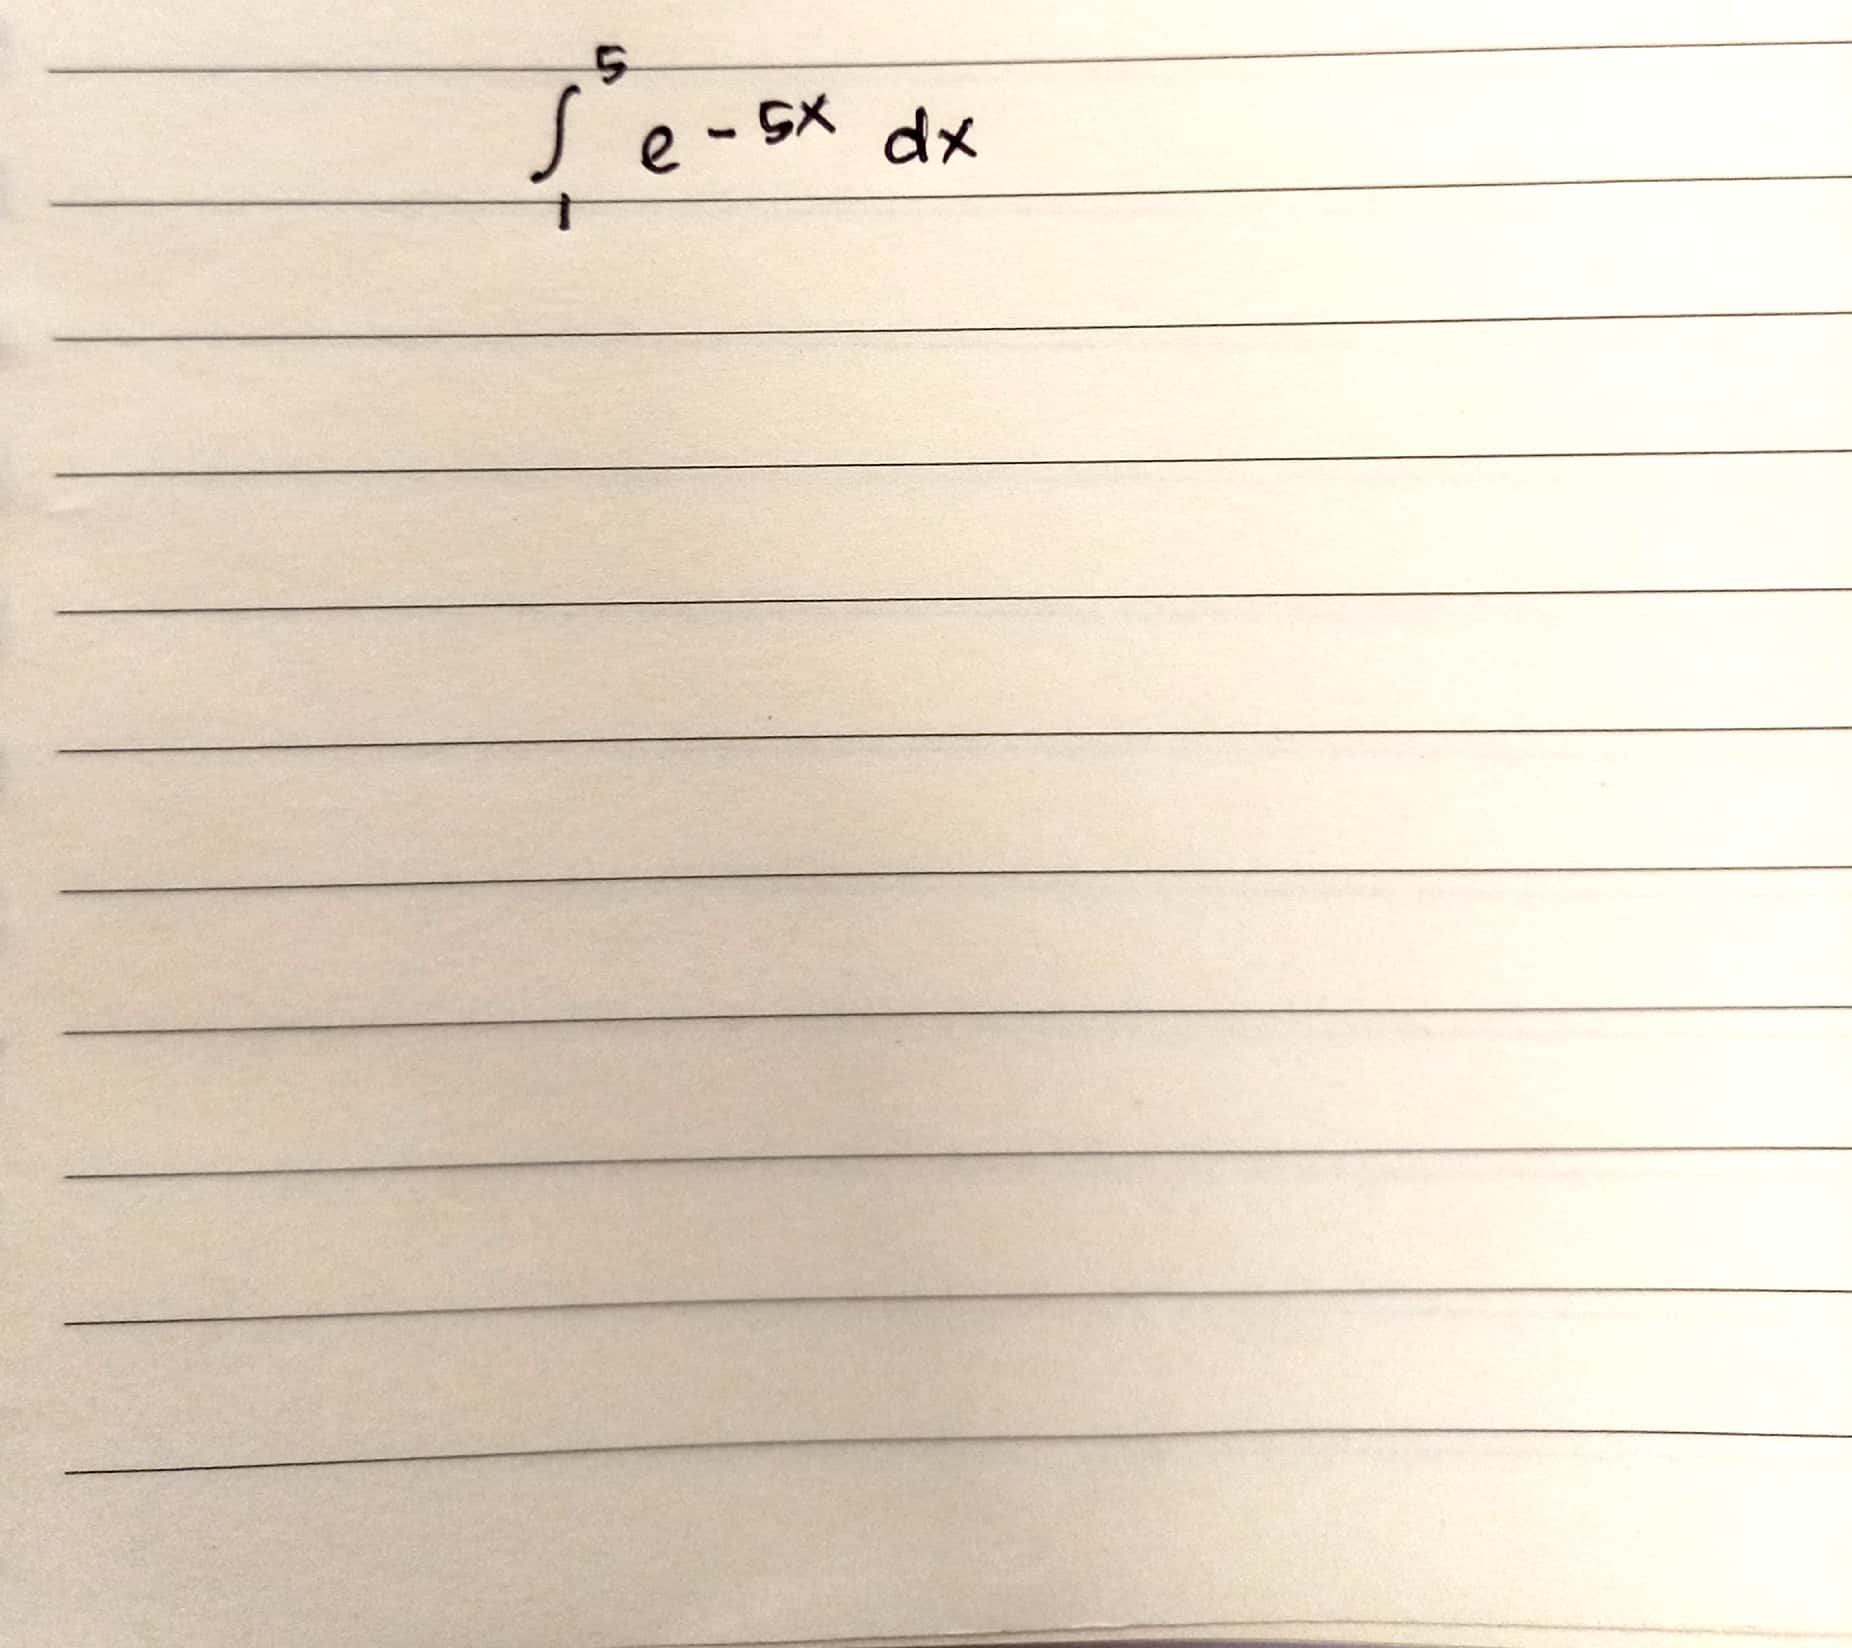 ∫₁⁵ e - 5x dx